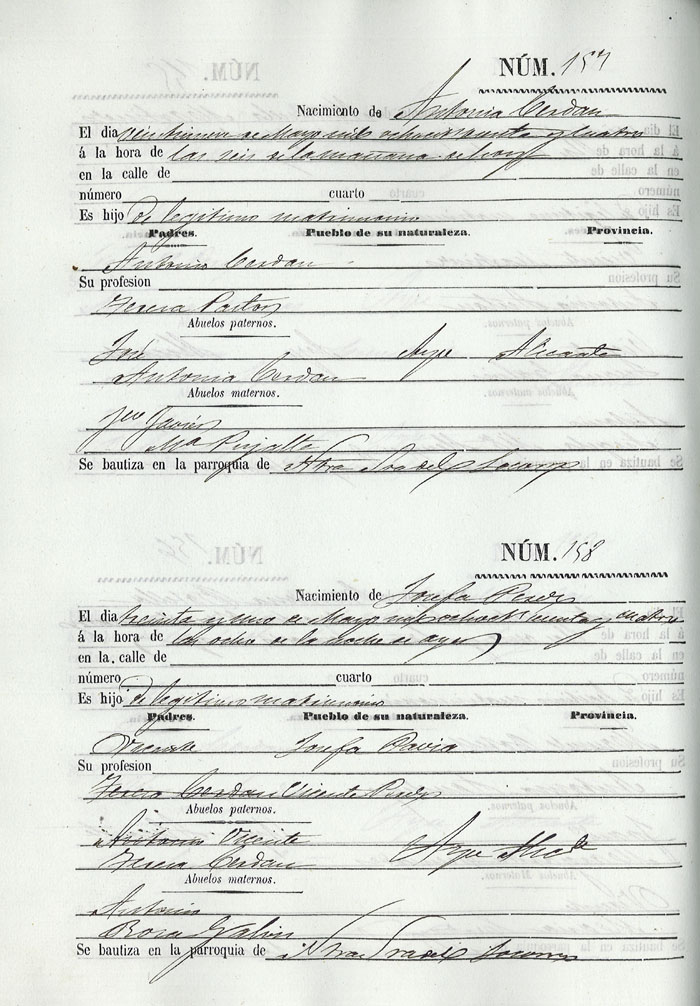 NÚM. 157
Nacimiento de Antonia Cerdan
El dia de Mayo mil ochocientos y cuatro
á la hora de las seis de la mañana de hoy
en la calle de
número cuarto
Es hijo de legitimo matrimonio
Padres. Pueblo de su naturaleza. Provincia.
Antonio Cerdan
Su profesion
Teresa Pastor
Abuelos paternos.
José Aspe Alicante
Antonia Cerdan
Abuelos maternos.
Javier
Mª Pujalte
Se bautiza en la parroquia de Ntra Sra del Socorro
NÚM. 158
Nacimiento de Josefa Perez
El dia treinta y uno de Mayo mil y cuatro
á la hora de las ocho de la noche de ayer
en la calle de
número cuarto
Es hijo de legitimo matrimonio
Padres. Pueblo de su naturaleza. Provincia.
Vicente Josefa Pavia
Su profesion
Teresa Cerdan Vicente Perez
Abuelos paternos.
Antonio Vicente
Teresa Cerdan Aspe
Abuelos maternos.
Antonio
Rosa Galvin
Se bautiza en la parroquia de Ntra Sra del Socorro